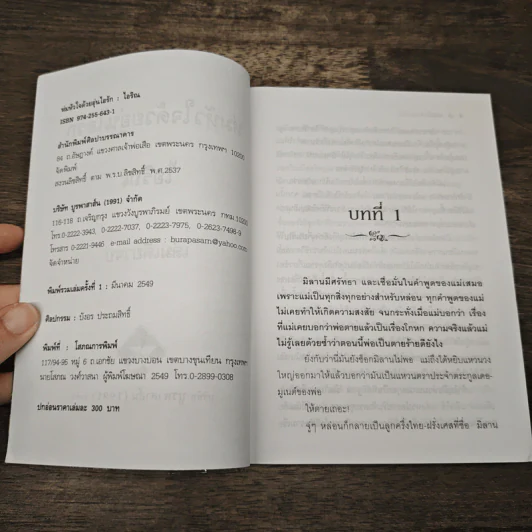 ห่มหัวใจด้วยอุ่นไอรัก : ไอริณ
ISBN 974-255-643-1
สำนักพิมพ์ศิลปาบรรณาคาร
84 ถ.อัษฎางค์ แขวงศาลเจ้าพ่อเสือ เขตพระนคร กรุงเทพฯ 10200
จัดพิมพ์
สงวนลิขสิทธิ์ ตาม พ.ร.บ.ลิขสิทธิ์ พ.ศ.2537
บริษัท บูรพาสาส์น (1991) จำกัด
116-118 ถ.เจริญกรุง แขวงวังบูรพาภิรมย์ เขตพระนคร กทม 10200
โทร.0-2222-3943, 0-2222-7037, 0-2223-7975, 0-2623-7498-9
โทรสาร 0-2221-9446 e-mail address : burapasarn@yahoo.com
จัดจำหน่าย
พิมพ์รวมเล่มครั้งที่ 1 : มีนาคม 2549
ศิลปกรรม : บังอร ประถมสิทธิ์
พิมพ์ที่ : โสภณการพิมพ์
117/94-95 หมู่ 6 ถ.เอกชัย แขวงบางบอน เขตบางขุนเทียน กรุงเทพฯ
นายโสภณ วงศ์วาสนา ผู้พิมพ์โฆษณา 2549 โทร.0-2899-0308
ปกอ่อนราคาเล่มละ 300 บาท
บทที่ 1
มิลานมีศรัทธา และเชื่อมั่นในคำพูดของแม่เสมอ
เพราะแม่เป็นทุกสิ่งทุกอย่างสำหรับหล่อน ทุกคำพูดของแม่
ไม่เคยทำให้เกิดความสงสัย จนกระทั่งเมื่อแม่บอกว่า เรื่อง
ที่แม่เคยบอกว่าพ่อตายแล้วเป็นเรื่องโกหก ความจริงแล้วแม่
ไม่รู้เลยด้วยซ้ำว่าตอนนี้พ่อเป็นตายร้ายดียังไง
ยังกับว่านี่มันยังช็อกมิลานไม่พอ แม่ถึงได้หยิบแหวนวง
ใหญ่ออกมาให้แล้วบอกว่ามันเป็นแหวนตราประจำตระกูลเดอ
มูเนต์ของพ่อ
ให้ตายเถอะ!
จู่ๆ หล่อนก็กลายเป็นลูกครึ่งไทย-ฝรั่งเศสที่ชื่อ มิลาน